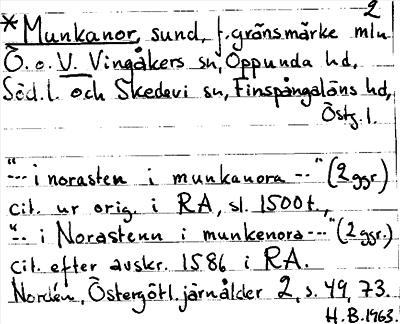 2
*Munkanor, sund, f. gränsmärke mln
Ö. o. V. Vingåkers sn, Oppunda hd,
Söd. l. och Skedevi sn, Finspångaläns hd,
Östg. l.
"--- i norasten i munkanora --" (2 ggr.)
cit. ur orig. i RA, sl. 1500 t.,
"-. i Norastenn i munkenora---" (2 ggr.)
cit. efter avskr. 1586 i RA.
Nordén, Östergötl. järnålder 2, s. 49, 73.
H. B. 1963.